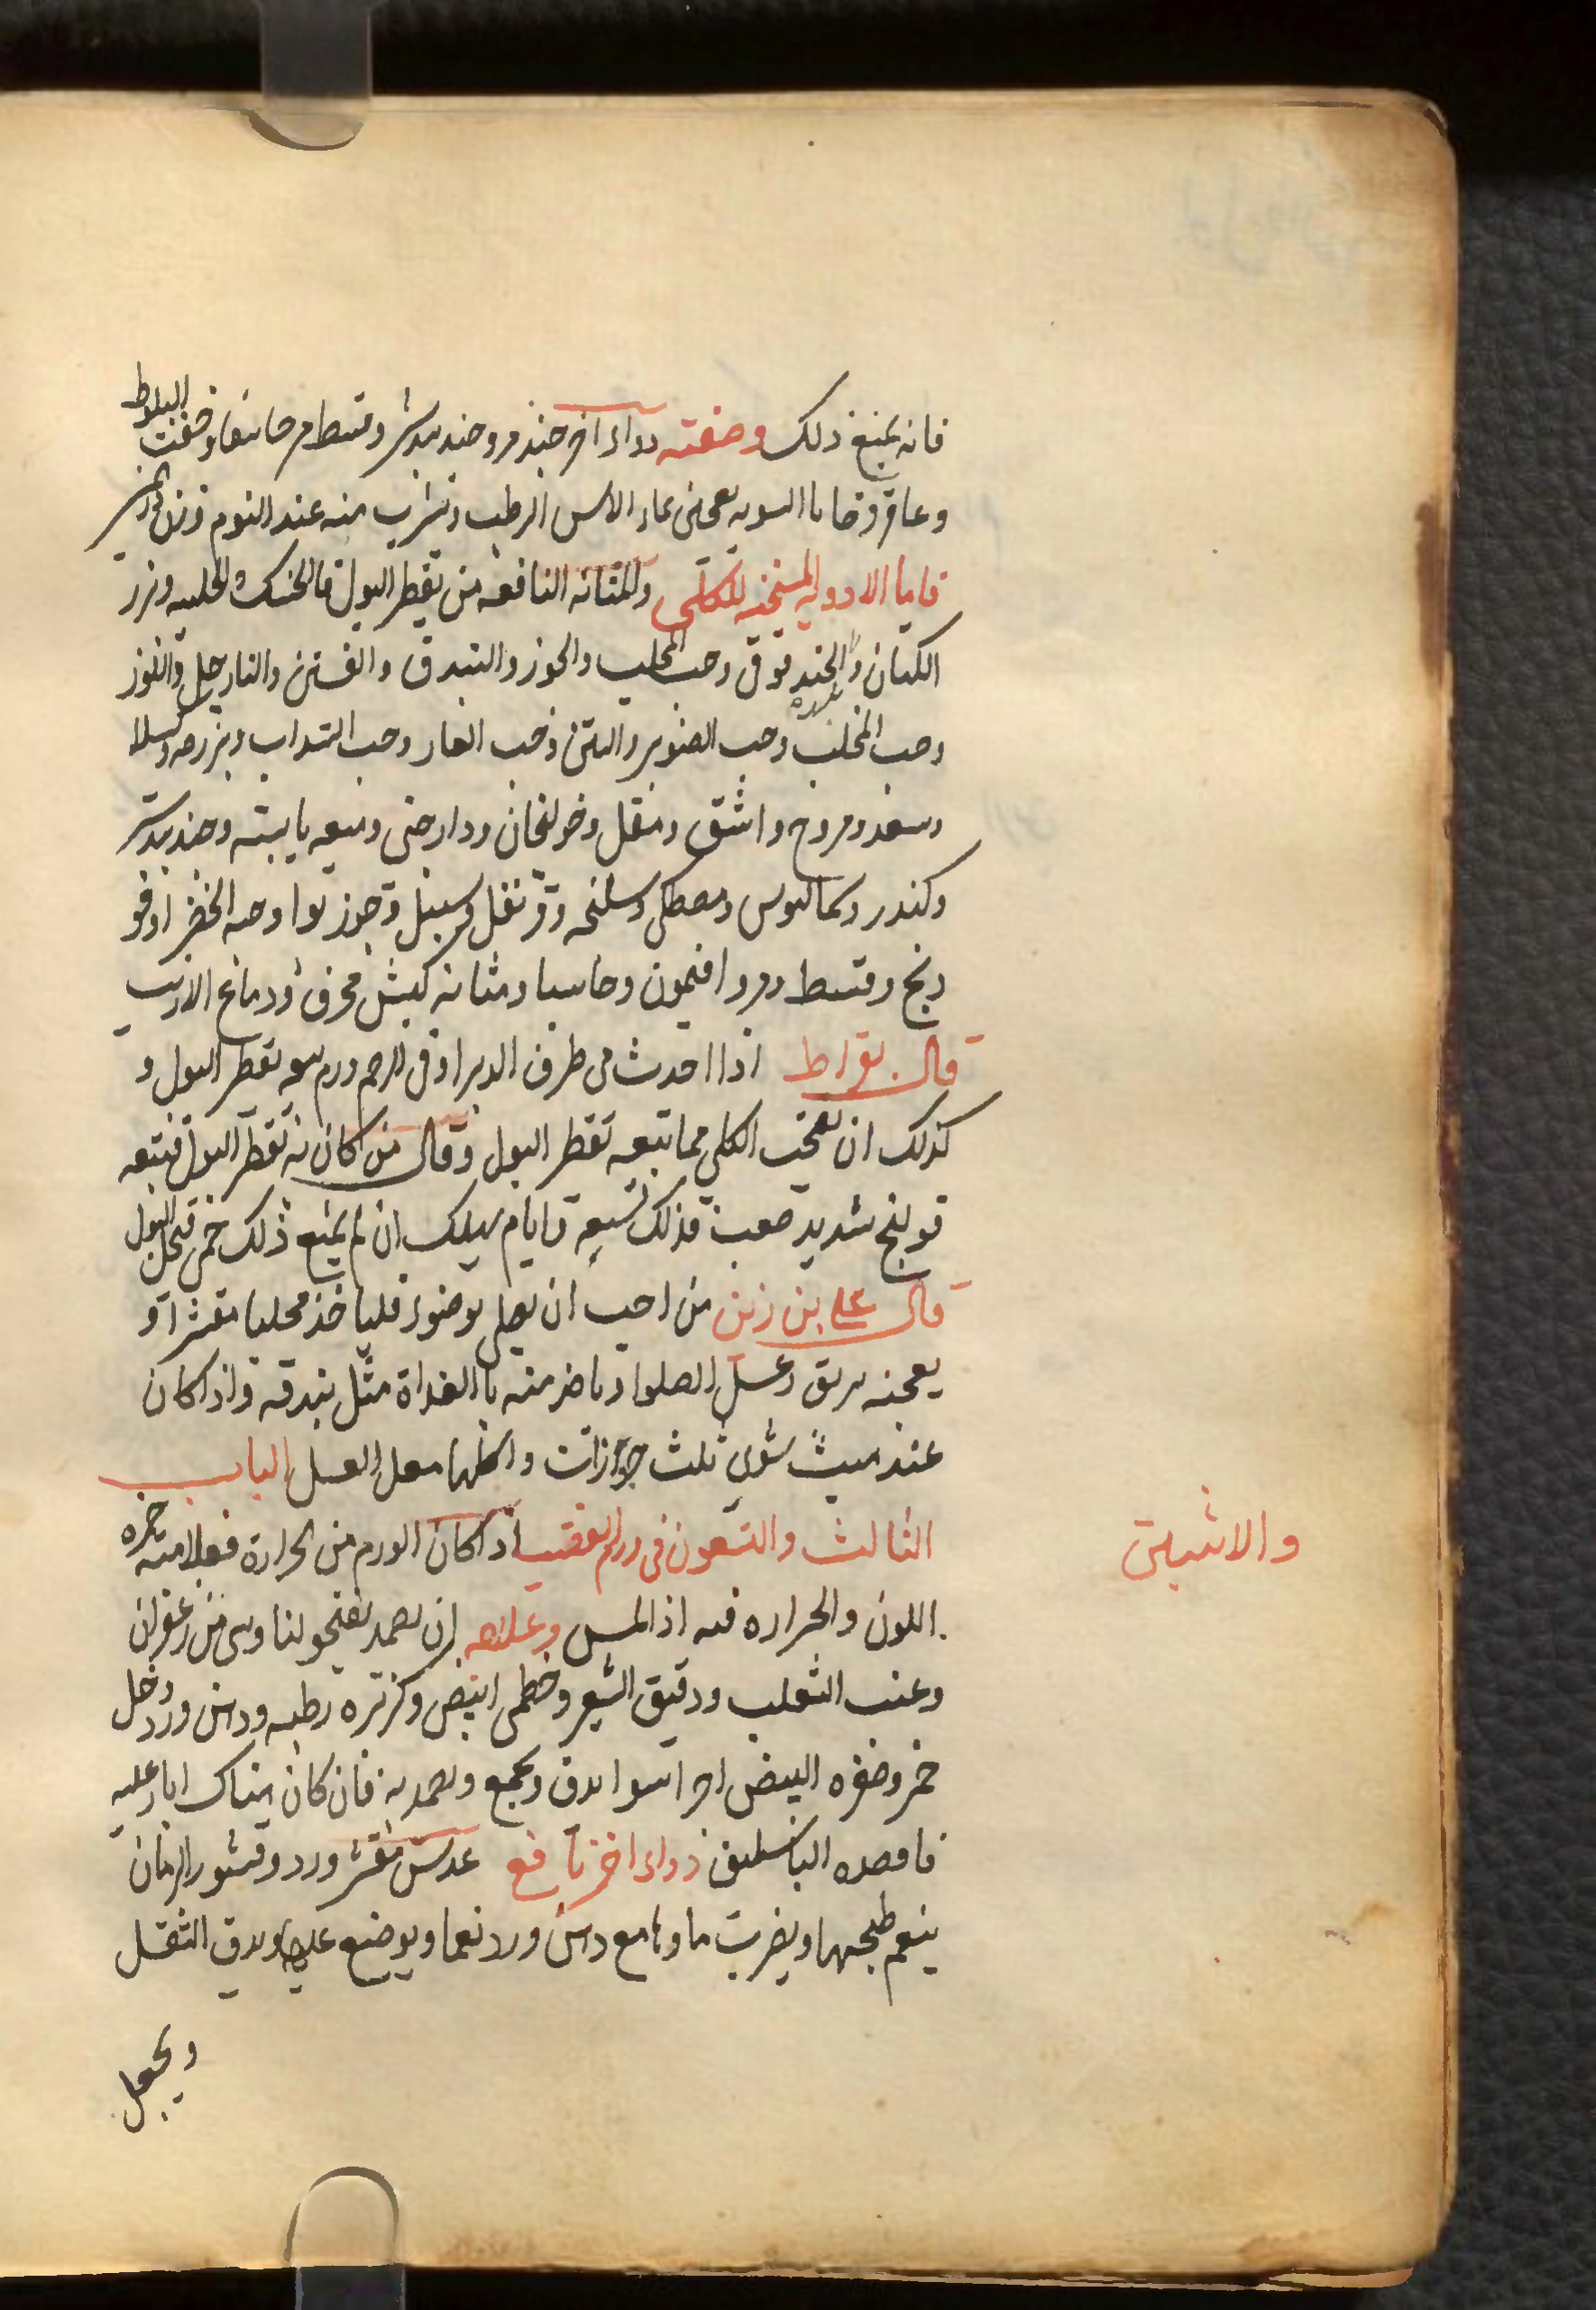 فانه يمنع ذلك وصفته دواء اخر مر وجندبيدستر وقسط مر حاشا وخفت البلوط
وعاقرقرحا بالسويه يعجن بماء الاس الرطب ويشرب منه عند النوم وزن
فاما الادويه المسخنه للكلى والمثانه النافعه من تقطر البول فالحسك والحلبه وبزر
الكتان والحندقوق وحب المحلب والجوز والبندق والفستق والنارجيل واللوز
وحب المحلب وحب الصنوبر والتين وحب الغار وحب السداب وبزره
وسعد ومر ووج واشق ومقل وخولنجان ودارصينى وميعه يابسه وجندبيدستر
وكندر وكمافيوس ومصطكى وسليخه وقرنفل وسنبل وجوز بوا وحبه الخضرا وفو
دنج وقسط ومر وافتيمون وحاشا ومثانه كبش محرق ودماغ الارنب
قال بقراط اذا احدث فى طرف الدبر او فى الرحم ورم تبعه تقطر البول و
كذلك ان تفتحت الكلى مما تبعه تقطر البول وقال من كان به تقطر البول فتبعه
قولنج شديد صعب فذلك سبعة ايام يهلك ان لم يمنع ذلك حمى فتحل البول
قال على بن زين من احب ان يصلى بوضوء فلياخذ محلبا مقشرا و
يعجنه بربق وعسل الصلوا وياخذ منه بالغداة مثل بندقه واذا كان
عند مبيت شوى ثلث جوزات واكلها مع العسل الباب
الثالث والتسعون فى ورم القضيب اذا كان الورم من الحرارة فعلامته حمره
والاثنيين
اللون والحراره فيه اذا لمس وعلاجه ان يضمد ببفتج ولبنا وشى من زعفران
وعنب الثعلب ودقيق الشعير وخطمى ابيض وكزبره رطبه ودهن ورد وخل
خمر وصفره البيض اجزا سوا يدق ويجمع ويضمد به فان كان هناك
فافصده الباسليق دواء اخر نافع عدس مقشر وورد وقشور الرمان
ينعم طبخها ويضرب ماوها مع دهن ورد نعما ويوضع عليها ويدق الثقل
ويجعل